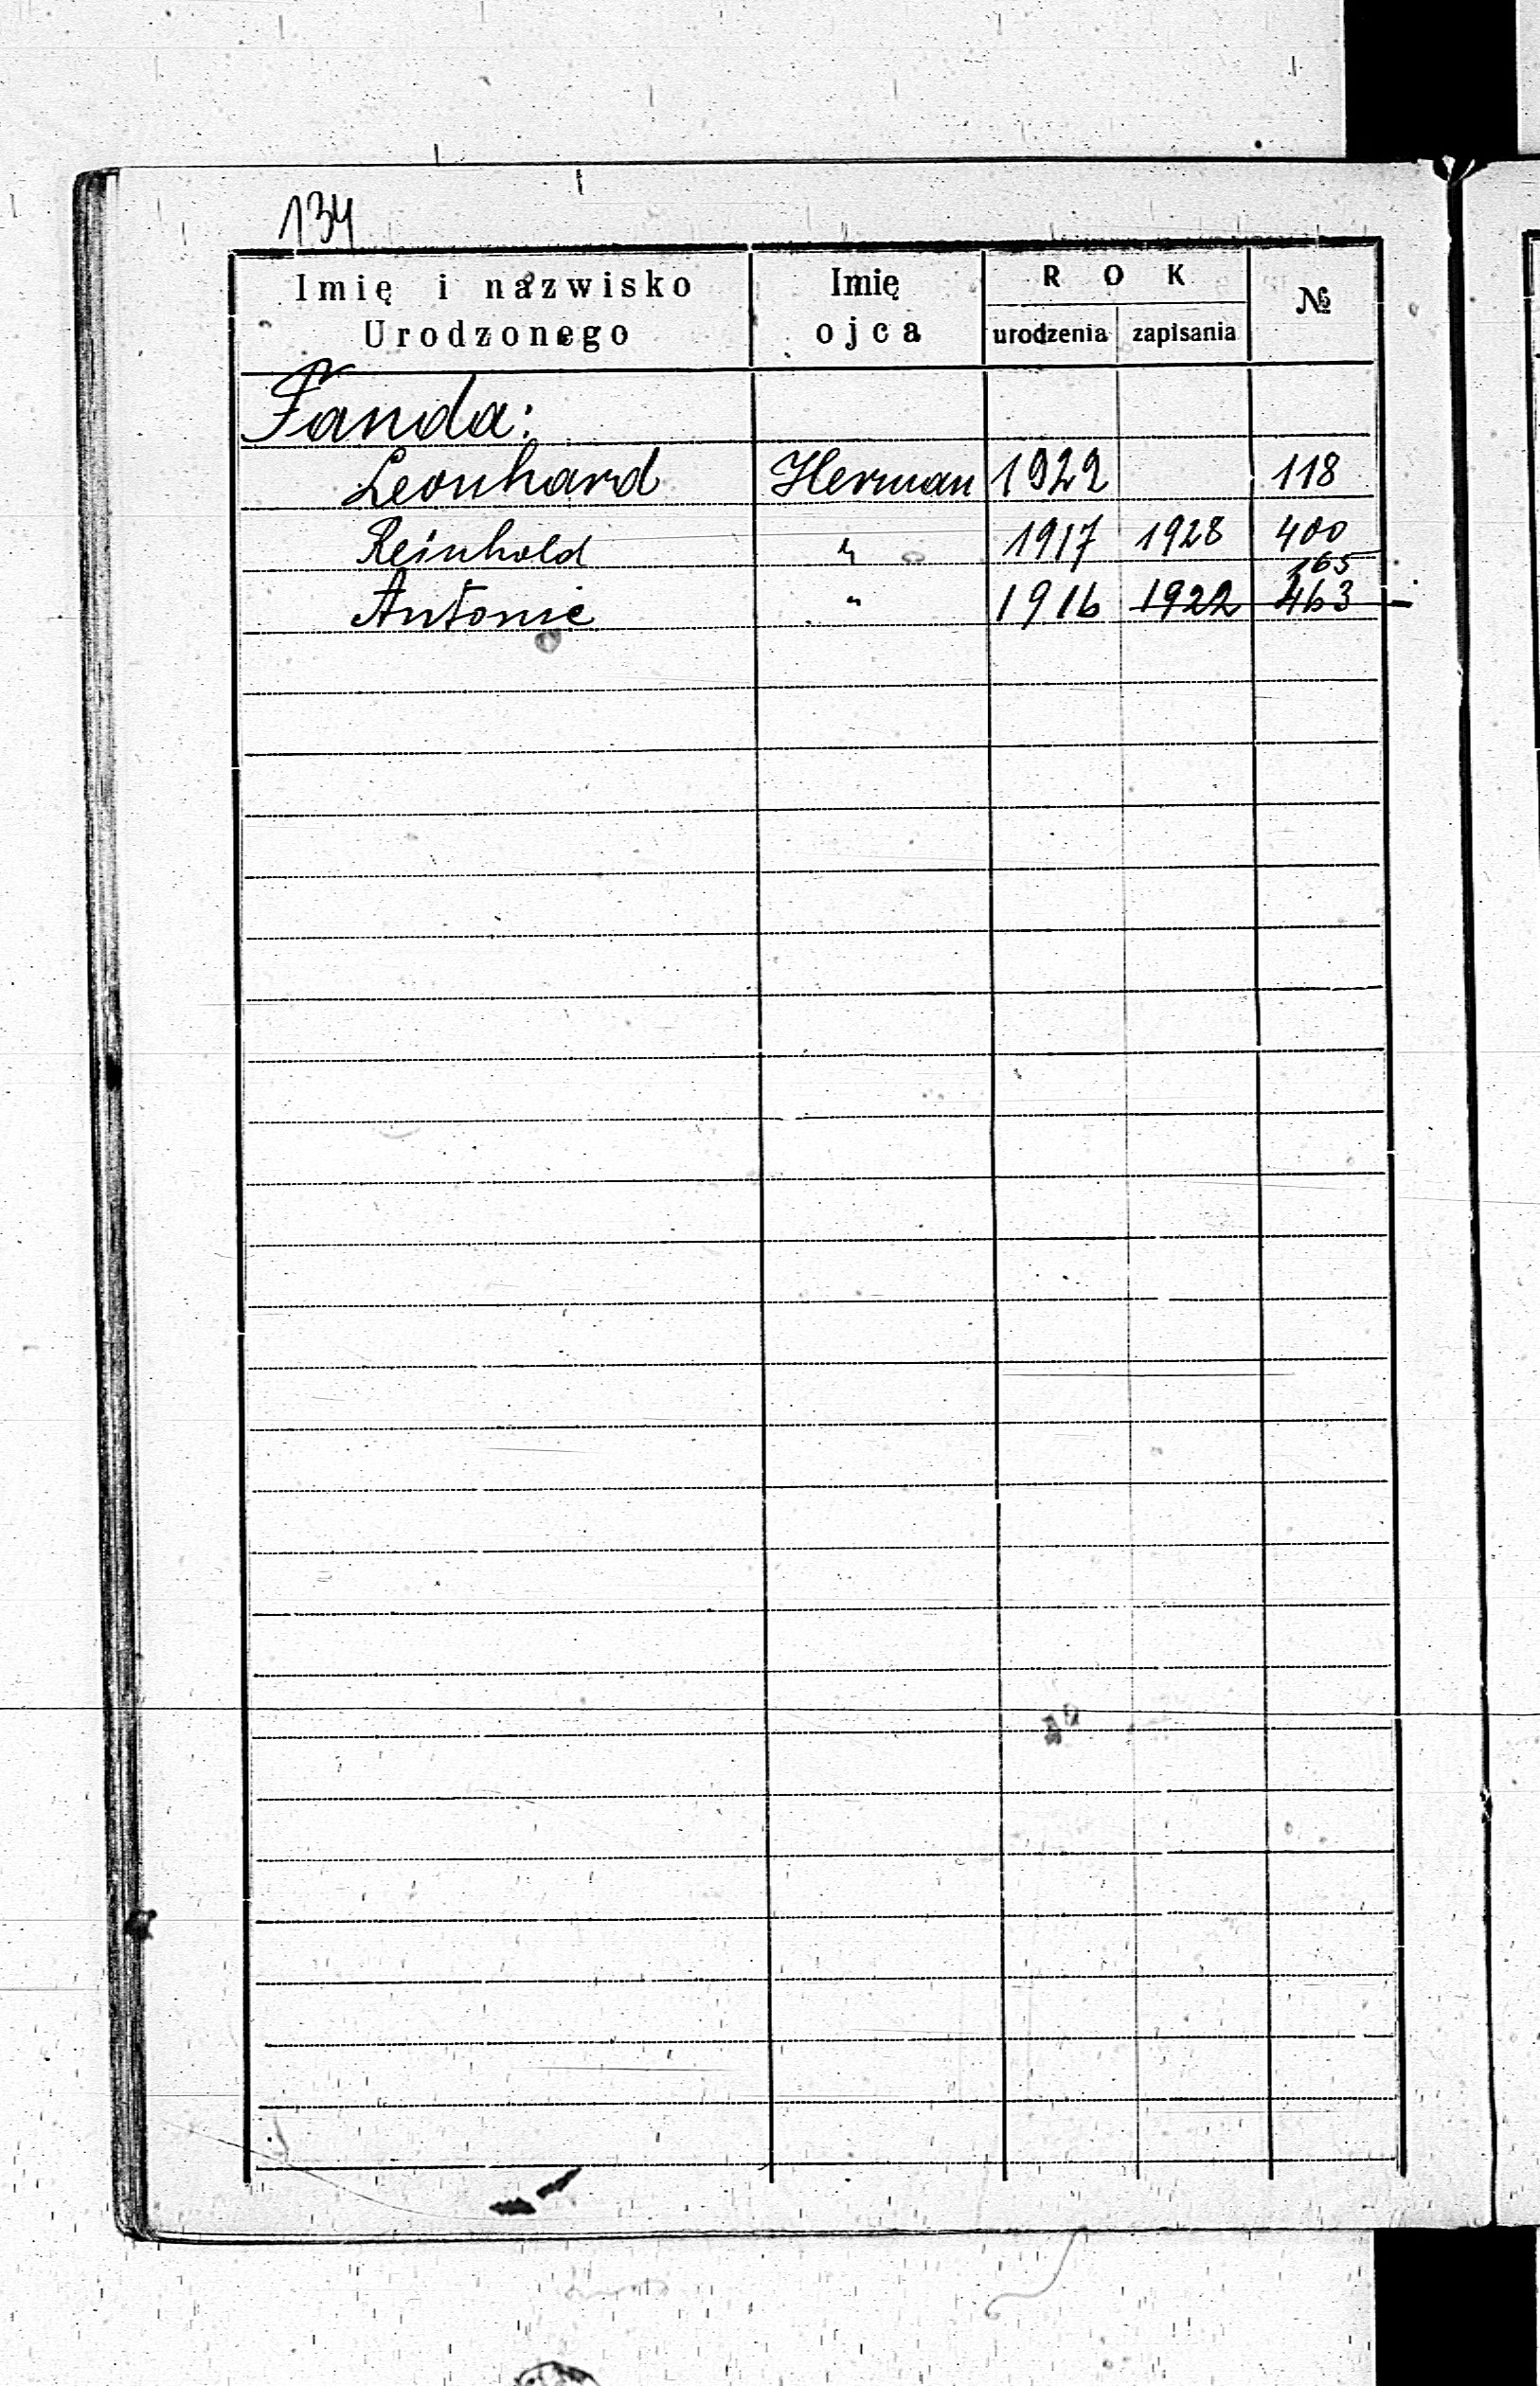 134
Imię i nazwisko Urodzonego | Imię ojca | ROK urodzenia | ROK zapisania | №
Fanda:
Leonhard | Herman | 1922 | | 118
Reinhold | " | 1917 | 1928 | 400
165
Antonie | " | 1916 | 1922 | 463